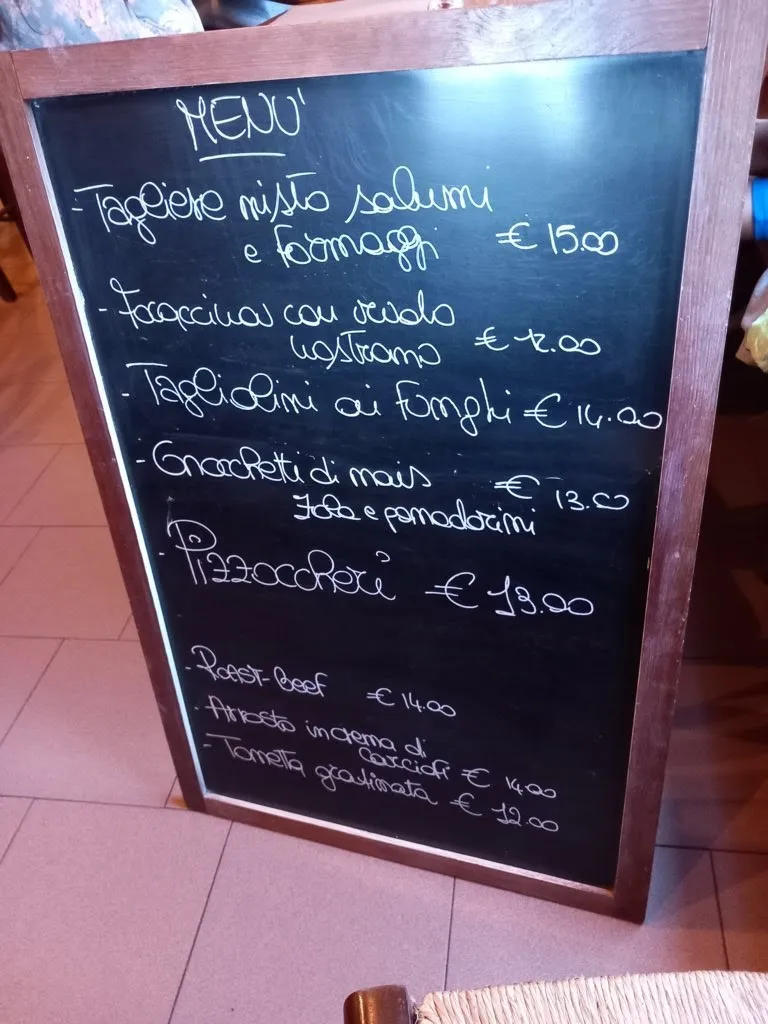 MENU'
- Tagliere misto salumi
e formaggi € 15.00
- Focaccina con
nostrano € 12.00
- Tagliolini ai funghi € 14.00
- Gnocchetti di mais € 13.00
Zola e pomodorini
- Pizzoccheri € 13.00
- Roast-Beef € 14.00
- Arrosto in crema di
carciofi € 14.00
- Tometta gratinata € 12.00